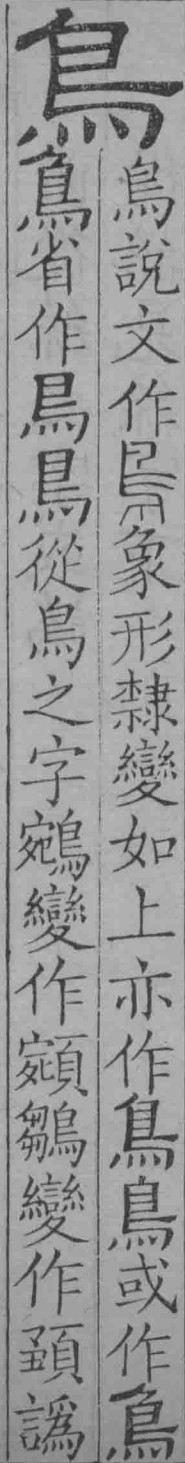 鳥
鳥說文作象形隸變如上亦作鳥鳥或作鳥
鳥省作從鳥之字鵷變作鶵變作譌